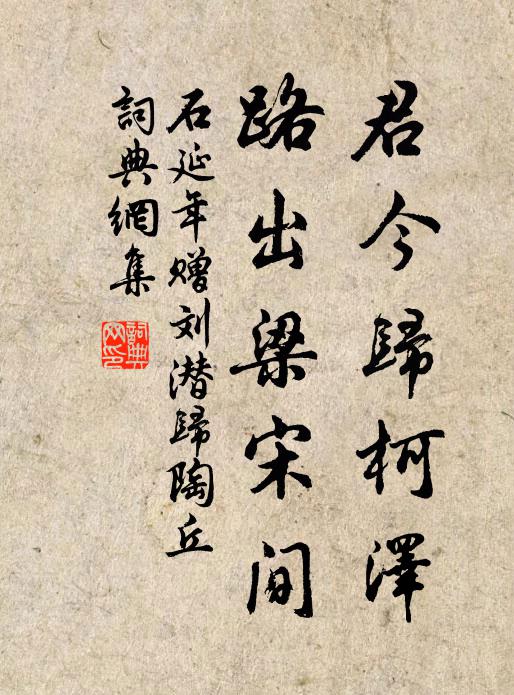 君今歸柯澤
路出梁宋间
石延年赠刘潜歸陶丘
詞典網集
詞典
网印